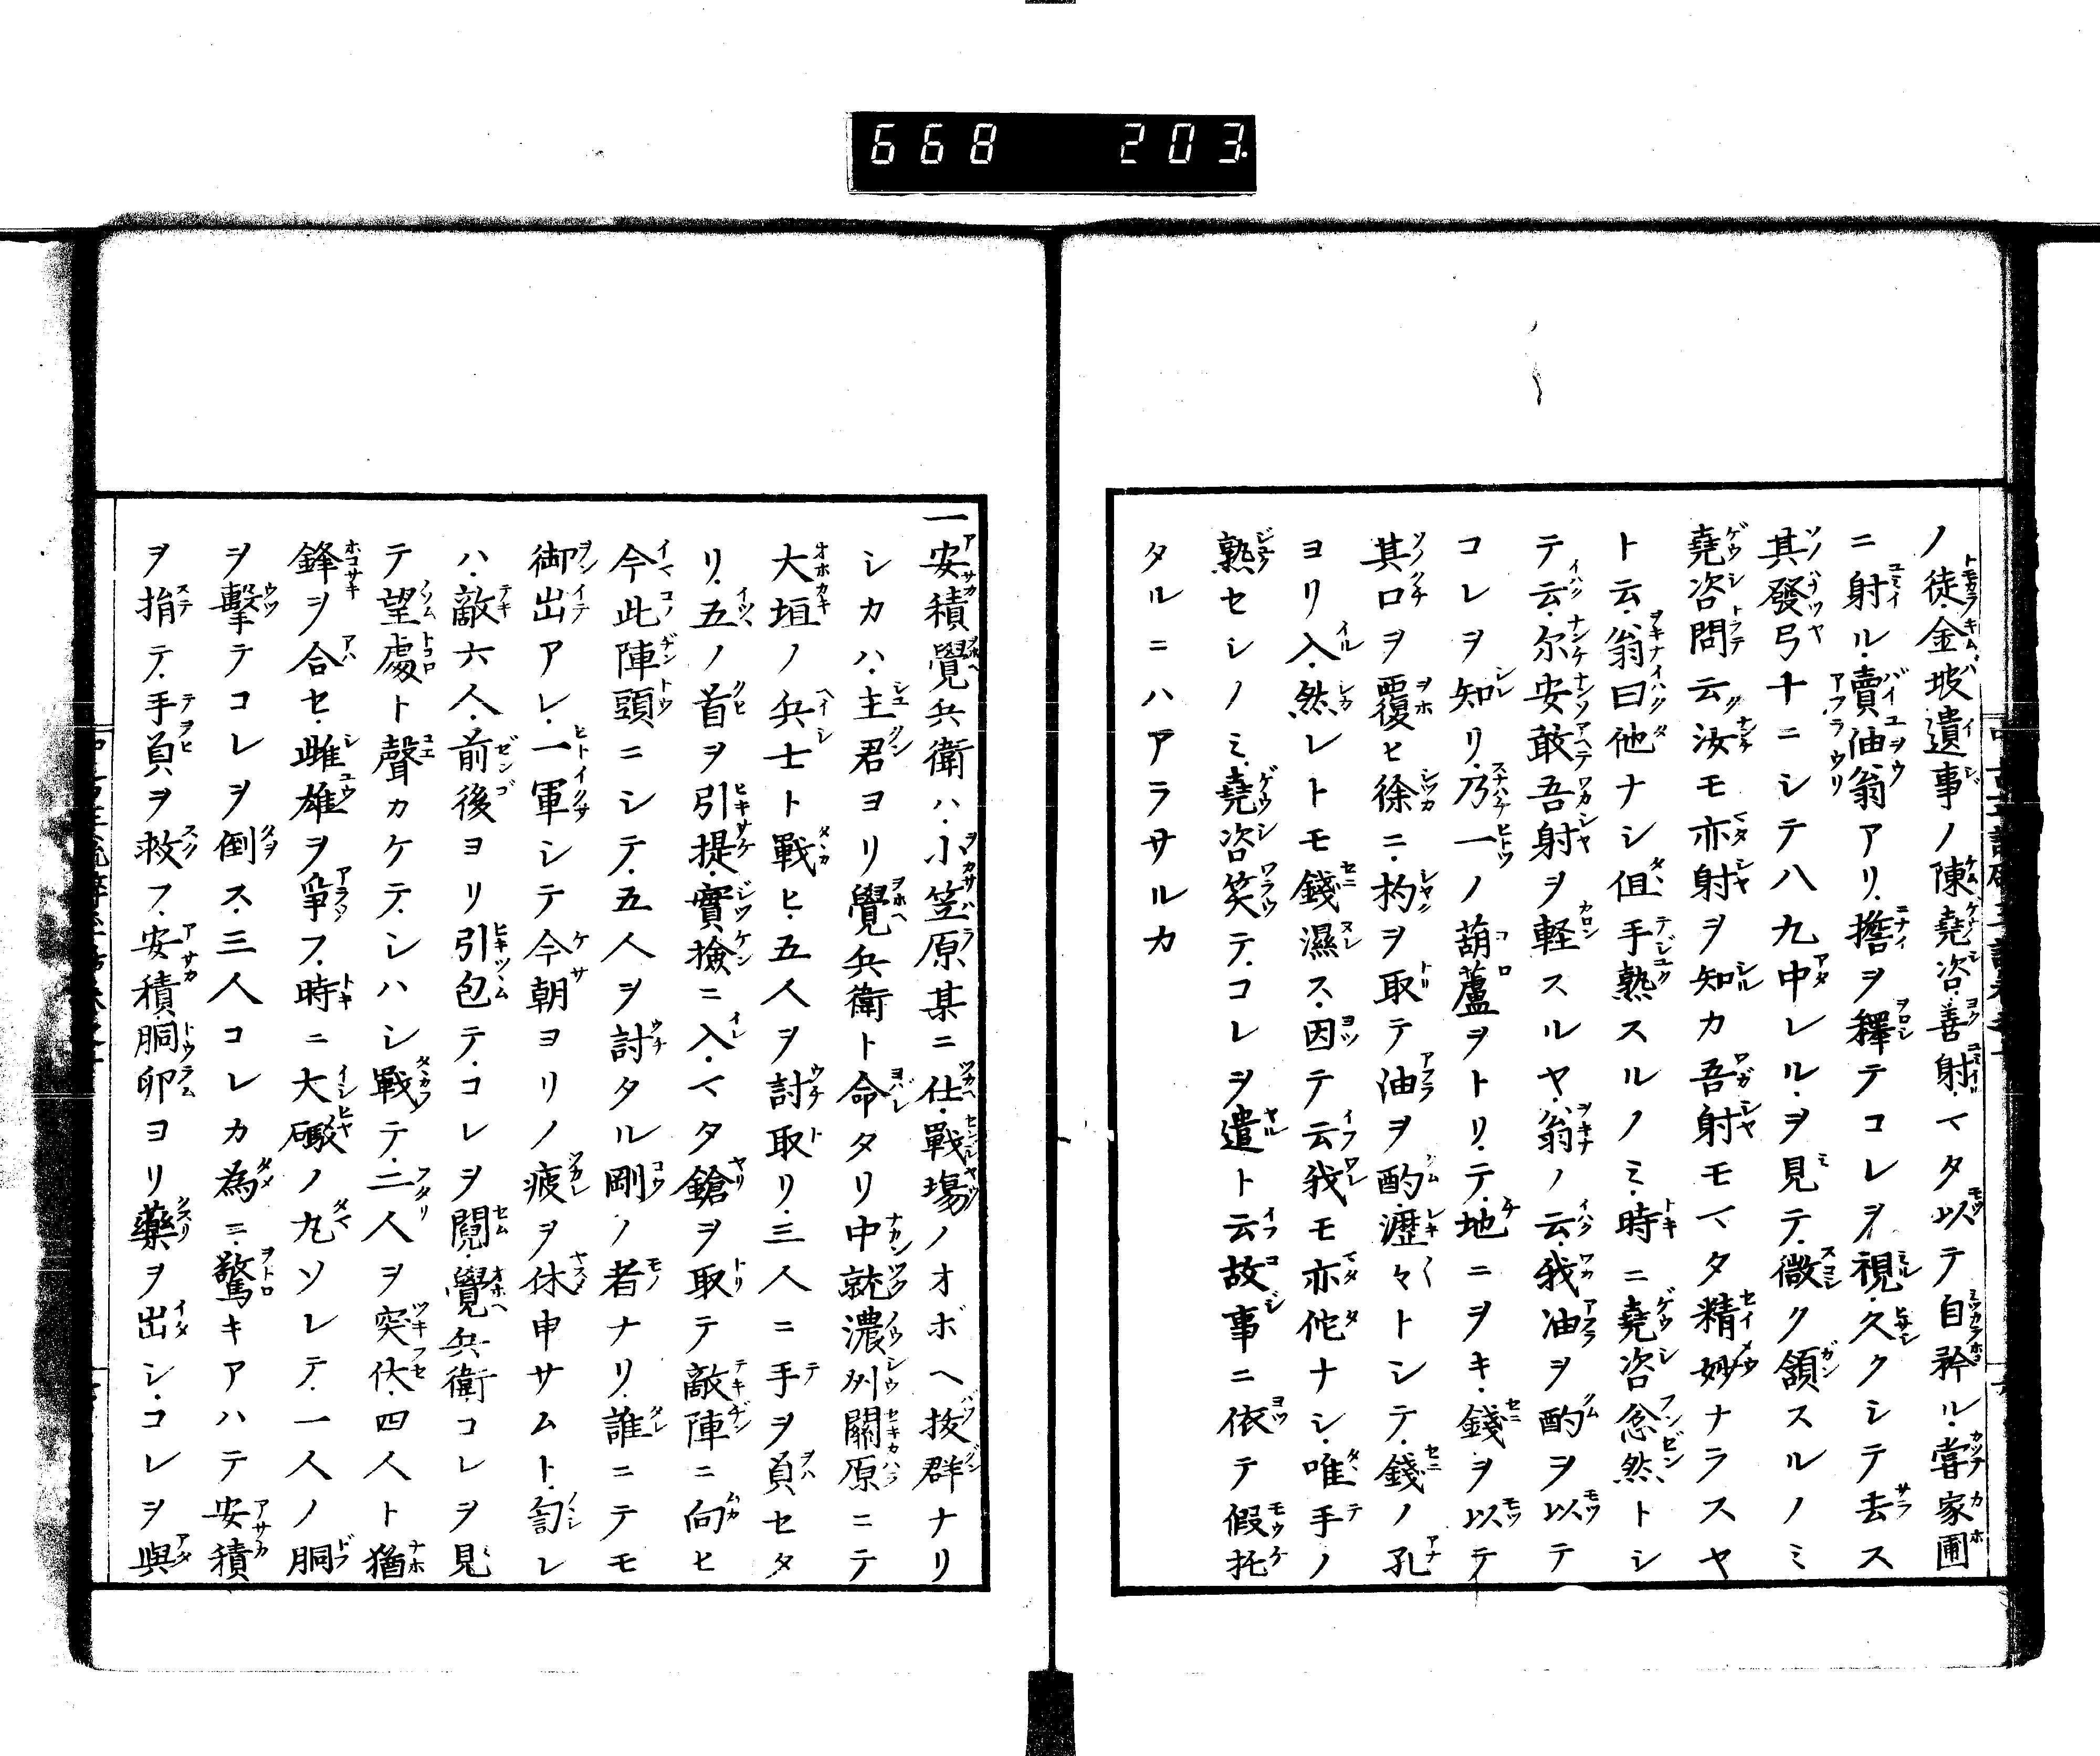 668 203.
ノ徒・金坡遺事ノ陳堯咨・善射・マタ以テ自矜ル・嘗家圃
ニ射ル・賣油翁アリ・擔ヲ釋テコレヲ視・久クシテ去ス
其發弓十ニシテ八九中レル・ヲ見テ・微ク頷スルノミ
堯咨問云汝モ亦射ヲ知カ吾射モマタ精妙ナラスヤ
ト云・翁曰他ナシ但手熟スルノミ・時ニ堯咨忿然トシ
テ云・尓安敢吾射ヲ軽スルヤ・翁ノ云・我油ヲ酌ヲ以テ
コレヲ知リ・乃一ノ葫蘆ヲトリ・テ・地ニヲキ・錢ヲ以テ
其口ヲ覆ヒ徐ニ・杓ヲ取テ油ヲ酌・瀝々トシテ・錢ノ孔
ヨリ入・然レトモ錢濕ス・因テ云我モ亦他ナシ・唯手ノ
熟セシノミ・堯咨笑テ・コレヲ遣ト云故事ニ依テ假托
タルニハアラサルカ
一安積覺兵衛ハ・小笠原某ニ仕・戰塲ノオボヘ抜群ナリ
シカハ・主君ヨリ覺兵衛ト命タリ中就濃州關原ニテ
大垣ノ兵士ト戰ヒ・五人ヲ討取リ・三人ニ手ヲ負セタ
リ・五ノ首ヲ引提・實撿ニ入・マタ鎗ヲ取テ敵陣ニ向ヒ
今此陣頭ニシテ・五人ヲ討タル剛ノ者ナリ・誰ニテモ
御出アレ・一軍シテ今朝ヨリノ疲ヲ休申サムト・訇レ
ハ・敵六人・前後ヨリ引包テ・コレヲ鬩・覺兵衛コレヲ見
テ望處ト聲カケテ・シハシ戰テ・二人ヲ突伏・四人ト猶
鋒ヲ合セ・雌雄ヲ爭フ・時ニ大礟ノ丸ソレテ・一人ノ胴
ヲ擊テコレヲ倒ス・三人コレカ為ニ・驚キアハテ安積
ヲ捐テ・手負ヲ救フ・安積・胴卯ヨリ藥ヲ出シ・コレヲ與